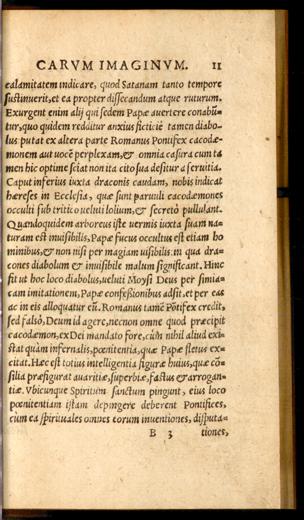 CARVM IMAGINVM. 11
calamitatem indicare, quod Satanam tanto tempore
sustinuerit, et ea propter dissecandum atque ruturum.
Exurgent enim alij qui sedem Papæ auertere conabũ=
tur, quo quidem redditur anxius ficticiè tamen diabo-
lus putat ex altera parte Romanus Pontifex cacodæ-
monem aut uocẽ perplexam, & omnia casura cum ta
men hic optime sciat non ita cito sua desitura seruitia.
Caput inferius iuxta draconis caudam, nobis indicat
hæreses in Ecclesia, quæ sunt paruuli cacodæmones
occulti sub tritico ueluti lolium, & secretò pullulant.
Quandoquidem arboreus iste uermis iuxta suam na-
turam est inuisibilis, Papæ fucus occultus est etiam ho
minibus, & non nisi per magiam uisibilis. in qua dra-
cones diabolum & inuisibile malum significant. Hinc
fit ut hoc loco diabolus, ueluti Moysi Deus per simia-
cam imitationem, Papæ confessionibus adsit, et per eas
ac in eis alloquatur eũ. Romanus tamẽ Põtifex credit,
sed falsò, Deum id agere, necnon omne quod præcipit
cacodæmon, ex Dei mandato fore, cùm nihil aliud exi-
stat quàm infernalis, pœnitentia, quæ Papæ fletus ex-
citat. Hæc est totius intelligentia figuræ huius, quæ cõ-
silia præfigurat auaritiæ, superbiæ, fastus & arrogan-
tiæ. Vbicunque Spiritum sanctum pingunt, eius loco
pœnitentiam istam depingere deberent Pontifices,
cùm ea spirituales omnes eorum inuentiones, disputa-
B 3 tiones,